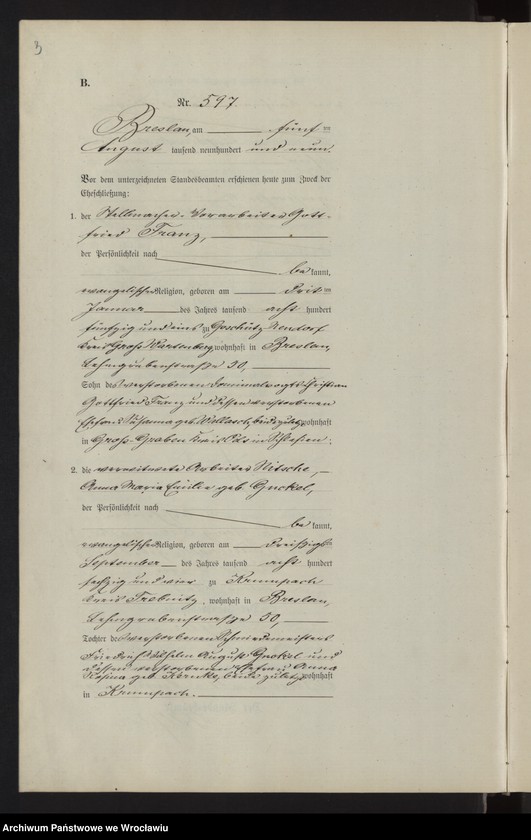 3
B.
Nr. 597
Breslau, am fünften
August tausend neunhundert und neun.
Vor dem unterzeichneten Standesbeamten erschienen heute zum Zweck der
Eheschließung:
1. der Stellmacher-Vorarbeiter Gott-
fried Franz,
der Persönlichkeit nach
bekannt,
evangelischer Religion, geboren am dritten
Januar des Jahres tausend acht hundert
fünfzig und eins zu Goschütz Neudorf
Kreis Groß Wartenberg, wohnhaft in Breslau,
Lehmgrubenstraße 30,
Sohn des verstorbenen Dominialvogts Christian
Gottfried Franz und dessen verstorbenen
Ehefrau Susanna geb. Wallasch, beide zuletzt wohnhaft
in Groß Graben Kreis Oels in Schlesien.
2. die verwitwete Arbeiter Nitsche,
Anna Maria Emilie geb. Guckel,
der Persönlichkeit nach
bekannt,
evangelischer Religion, geboren am dreißigsten
September des Jahres tausend acht hundert
sechzig und vier zu Krumpach
Kreis Trebnitz, wohnhaft in Breslau,
Lehmgrubenstraße 30,
Tochter des verstorbenen Schmiedemeisters
Friedrich Wilhelm August Guckel und
dessen verstorbenen Ehefrau Anna
Rosina geb., beide zuletzt wohnhaft
in Krumpach.
Archiwum Państwowe we Wrocławiu